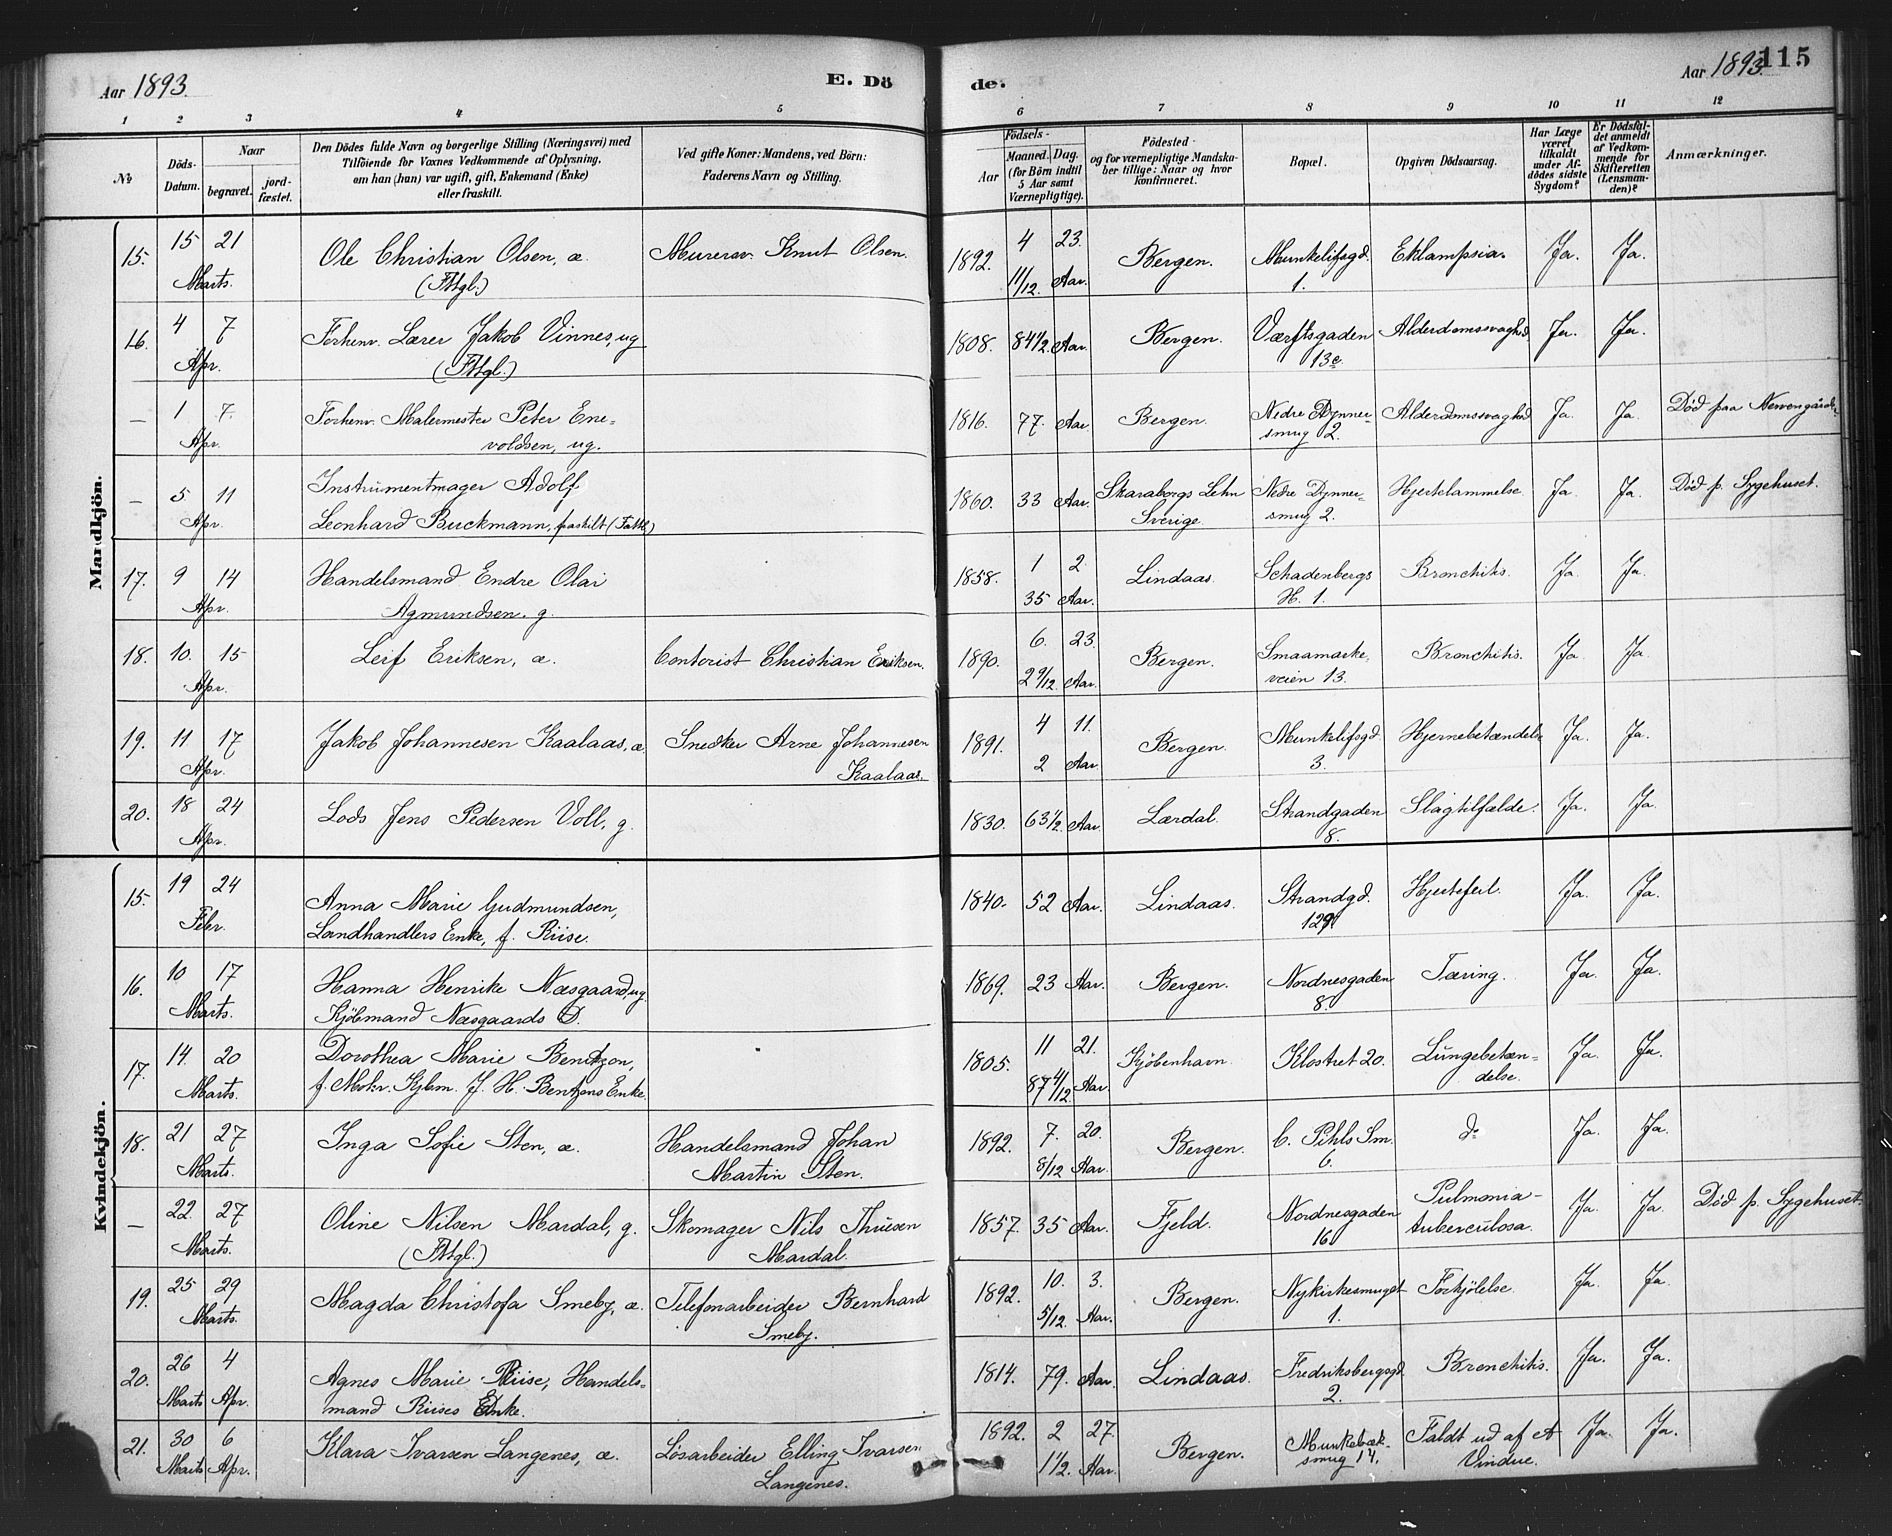 Aar 1893. E. Dö de. Aar 1893. 115
1 2 3 4 5 6 7 8 9 10 11 12
№
Döds-Datum.
Naar
begravet.
jord-fæstet.
Den Dödes fulde Navn og borgerlige Stilling (Næringsvei) med
Tilföiende for Voxnes Vedkommende af Oplysning,
om han (hun) var ugift, gift, Enkemand (Enke)
eller fraskilt.
Ved gifte Koner: Mandens, ved Börn:
Faderens Navn og Stilling.
Födsels-
Aar
Maaned. Dag.
(for Børn indtil
5 Aar samt
Værnepligtige).
Födested
og for værnepligtige Mandska-
ber tillige: Naar og hvor
konfirmeret.
Bopæl.
Opgiven Dödsaarsag.
Har Læge
været
tilkaldt
under Af-
dödes sidste
Sygdom?
Er Dödsfal-
det anmeldt
af Vedkom-
mende for
Skifteretten
(Lensman-
den)?
Anmærkninger.
Mandkjön.
15. 15 21 Ole Christian Olsen, æ. Murersv. Knut Olsen. 1892. 4 23. Bergen. Munkelifsgd. Eklampsia. Ja. Ja.
Marts. (Fttgl.) 11/12. Aar. 1.
16. 4 7 Forhenv. Lærer Jakob Vinnes, ug 1808. 84 1/2. Aar. Bergen. Værftsgaden Alderdomssvaghed Ja. Ja.
Apr. (Fttgl.) 13c
— 1 7. Forhenv. Malermester Peter Ene- 1816. 77. Aar. Bergen. Nedre Dynner- Alderdomssvaghed Ja. Ja. Död paa Nevengaarden
Apr. voldsen, ug. smug 2.
— 5 11 Instrumentmager Adolf 1860. 33 Aar. Skaraborgs Lehn Nedre Dynner- Hjertelammelse Ja. Ja. Död p. Sygehuset.
Apr. Leonhard Buckmann, fraskilt Sverige. smug 2.
17. 9 14 Handelsmand Endre Olai 1858. 1 2 Lindaas. Schadenbergs Bronchitis. Ja. Ja.
Apr. Agmundsen. g. 35 Aar. H. 1.
18. 10. 15 Leif Eriksen, æ. Contorist Christian Eriksen. 1890. 6. 23. Bergen. Smaamarke- Bronchitis. Ja. Ja.
Apr. 2 9/12. Aar. veien 13.
19. 11 17 Jakob Johannesen Kaalaas, æ Snedker Arne Johannesen 1891. 4 11. Bergen. Munkelifsgd. Hjernebetændelse Ja. Ja.
Apr. Kaalaas. 2 Aar. 3.
20. 18 24 Lods Jens Pedersen Voll, g. 1830. 63 1/2. Aar. Lærdal. Strandgaden Slagtilfælde. Ja. Ja.
Apr. 8.
Kvindekjön.
15. 19 24 Anna Marie Gudmundsen, 1840. 52 Aar. Lindaas. Strandgd. Hjertefeil. Ja. Ja.
Febr. Landhandlers Enke, f. Riise.
16. 10 17 Hanna Henrike Næsgaard, ug. 1869. 23 Aar. Bergen. Nordnesgaden Tæring. Ja. Ja.
Marts. Kjöbmand Næsgaards D. 8.
17. 14. 20 Dorothea Marie Bentzon, 1805. 11 21. Kjöbenhavn. Klostret 20. Lungebetæn- Ja. Ja.
Marts. f. Mohr. Kjbm. J. H. Bentzons Enke. 87 4/12. Aar. delse.
18. 21 27 Inga Sofie Sten, æ. Handelsmand Johan 1892. 7. 20. Bergen. C. Pihls Sm. do Ja. Ja.
Marts. Martin Sten. 8/12 Aar. 6.
— 22. 27 Oline Nilsen Mardal, g. Skomager Nils Thuesen 1857. 35 Aar. Fjeld. Nordnesgaden Pulmonia- Ja. Ja. Död p. Sygehuset
Marts. (Fttgl.) Mardal. 16 tuberculosa.
19. 25 29 Magda Christofa Smeby, æ. Telefonarbeider Bernhard 1892. 10. 3. Bergen. Nykirkesmuget Forkjölelse. Ja. Ja.
Marts. Smeby. 5/12. Aar. 1.
20. 26 4 Agnes Marie Riise, Handels- 1814. 79. Aar. Lindaas. Fredriksbergsgd. Bronchitis. Ja. Ja.
Marts Apr. mand Riises Enke. 2.
21. 30 6 Klara Ivarsen Langenes, æ. Løsarbeider Elling Ivarsen 1892. 2 27. Bergen. Munkebæk- Faldt ud af et Ja. Ja.
Marts Apr. Langenes. 1 1/2. Aar. smug 14. Vindue.